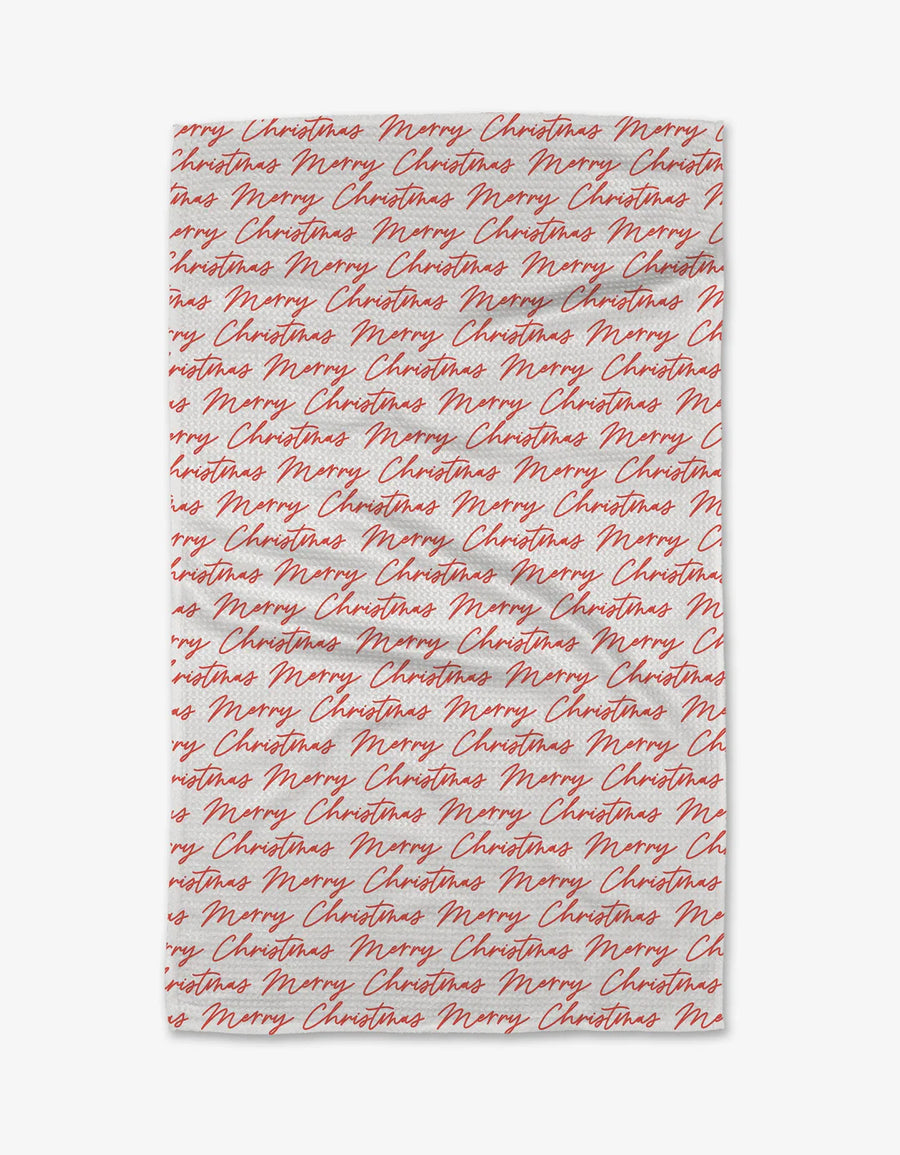 erry Christmas Merry Christmas Merry C
Christmas Merry Christmas Merry Christm
tmas Merry Christmas Merry Christmas M
erry Christmas Merry Christmas Merry C
Christmas Merry Christmas Merry Christma
mas Merry Christmas Merry Christmas M
rry Christmas Merry Christmas Merry Ch
ristmas Merry Christmas Merry Christmas
as Merry Christmas Merry Christmas Me
erry Christmas Merry Christmas Merry C
hristmas Merry Christmas Merry Christma
mas Merry Christmas Merry Christmas M
rry Christmas Merry Christmas Merry C
hristmas Merry Christmas Merry Christma
as Merry Christmas Merry Christmas M
rry Christmas Merry Christmas Merry Ch
ristmas Merry Christmas Merry Christmas
as Merry Christmas Merry Christmas Me
ry Christmas Merry Christmas Merry Ch
ristmas Merry Christmas Merry Christmas
as Merry Christmas Merry Christmas Me
ry Christmas Merry Christmas Merry Ch
ristmas Merry Christmas Merry Christmas
as Merry Christmas Merry Christmas Me
ry Christmas Merry Christmas Merry Ch
ristmas Merry Christmas Merry Christmas
as Merry Christmas Merry Christmas Me